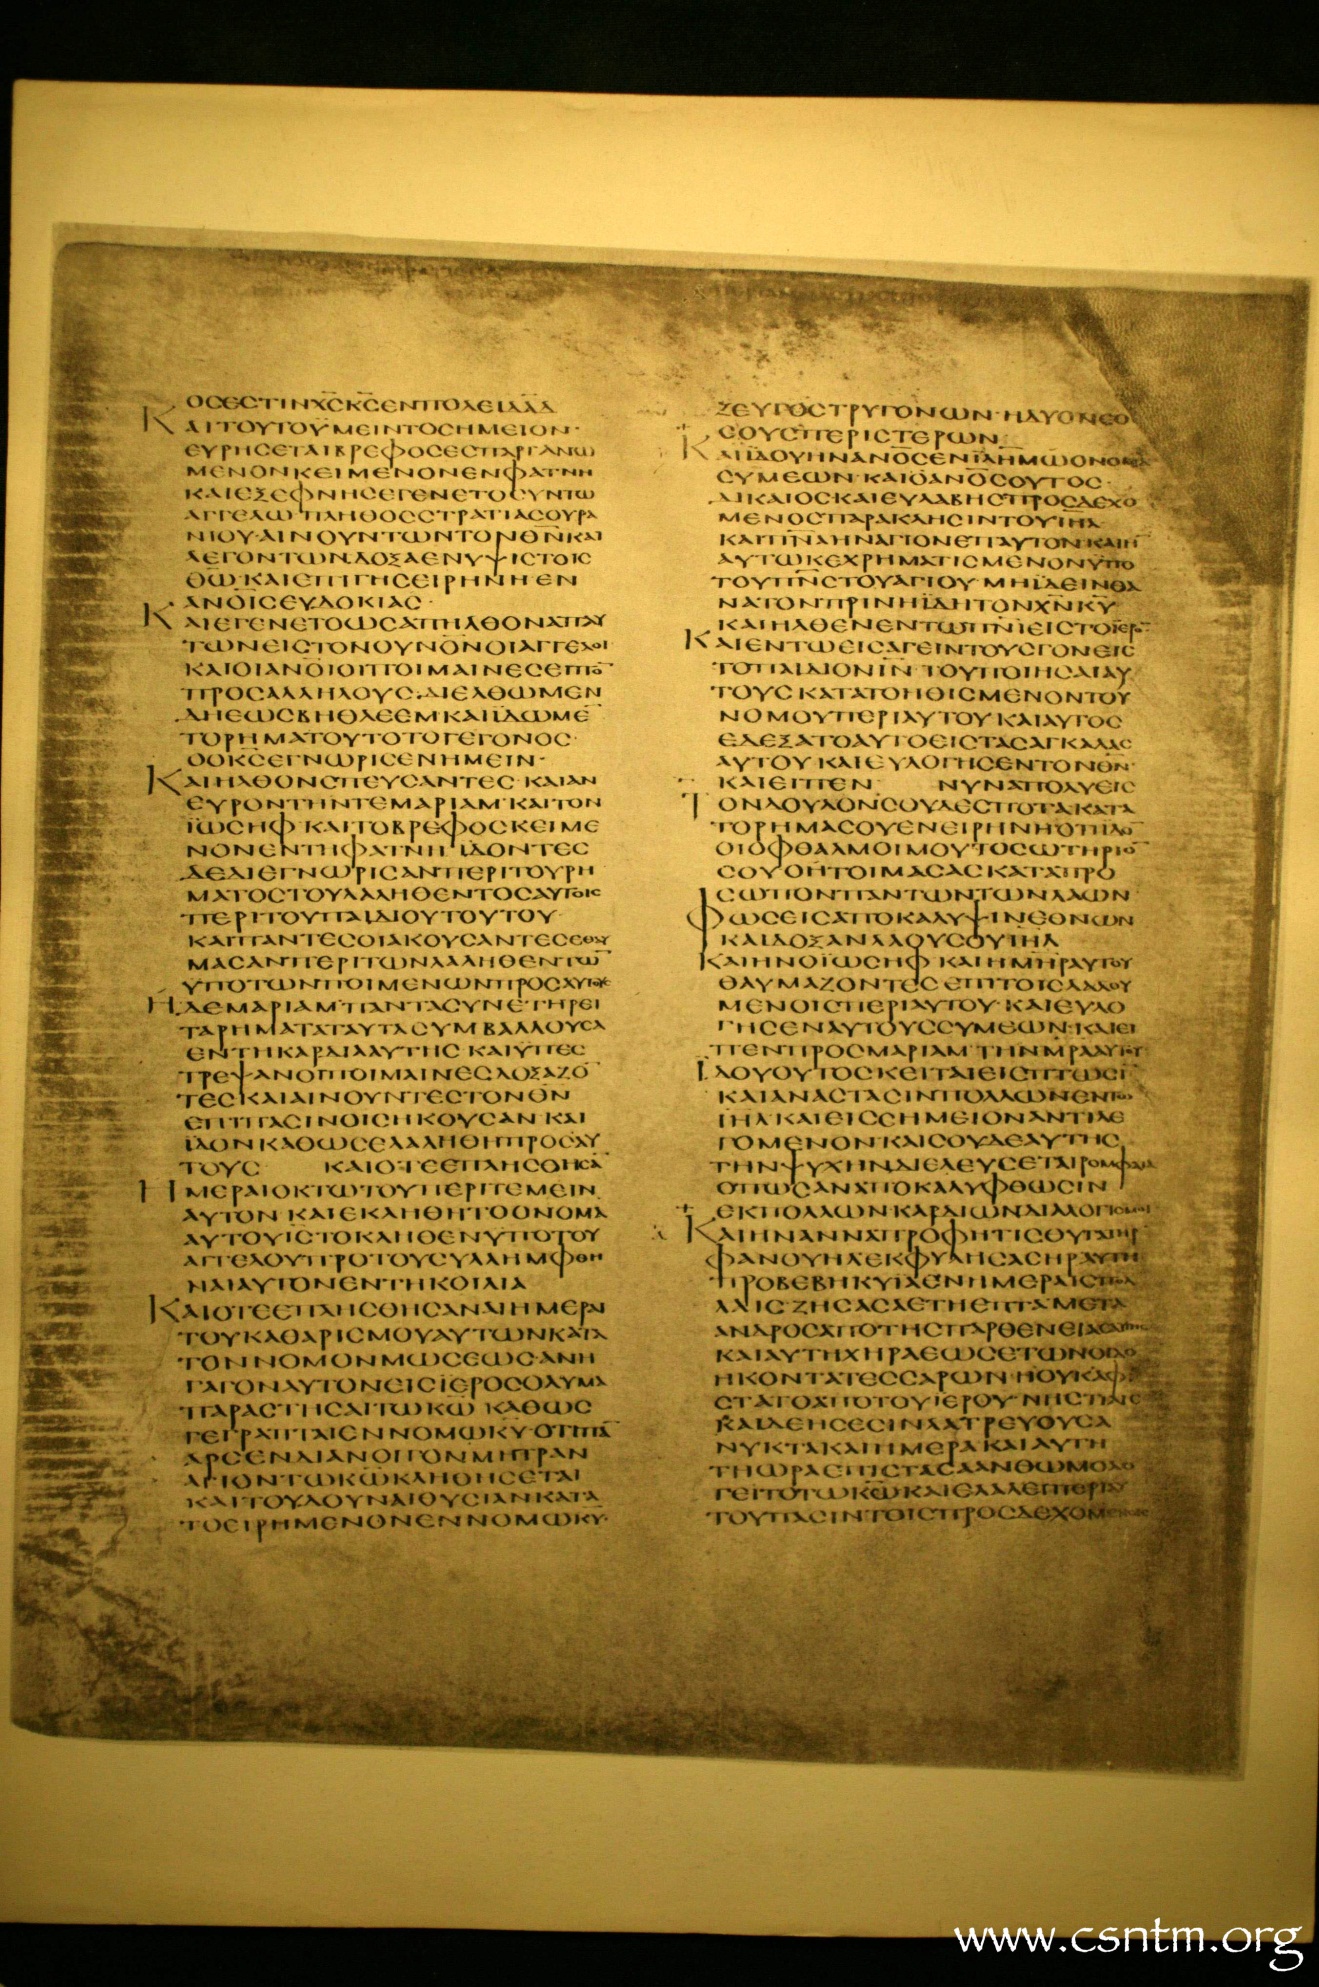 ΟϹΕϹΤΙΝΧ̅Ϲ̅Κ̅Ϲ̅ΕΝΠΟΛΕΙΔΑ̅Δ̅
ΚΑΙΤΟΥΤΟΫΜΕΙΝΤΟϹΗΜΕΙΟΝ·
ΕΥΡΗϹΕΤΑΙΒΡΕΦΟϹΕϹΠΑΡΓΑΝΩ
ΜΕΝΟΝΚΕΙΜΕΝΟΝΕΝΦΑΤΝΗ
ΚΑΙΕΞΕΦΝΗϹΕΓΕΝΕΤΟϹΥΝΤΩ
ΑΓΓΕΛΩΠΛΗΘΟϹϹΤΡΑΤΙΑϹΟΥΡΑ
ΝΙΟΥ·ΑΙΝΟΥΝΤΩΝΤΟΝΘ̅Ν̅ΚΑΙ
ΛΕΓΟΝΤΩΝ·ΔΟΞΑΕΝΥΨΙϹΤΟΙϹ
Θ̅Ω̅·ΚΑΙΕΠΙΓΗϹΕΙΡΗΝΗΕΝ
ΑΝΟ̅Ι̅Ϲ̅ΕΥΔΟΚΙΑϹ·
ΚΑΙΕΓΕΝΕΤΟΩϹΑΠΗΛΘΟΝΑΠΑΥ
ΤΩΝΕΙϹΤΟΝΟΥΝΟ̅Ν̅ΟΙΑΓΓΕΛΟΙ
ΚΑΙΟΙΑΝΟ̅Ι̅ΟΙΠΟΙΜΑΙΝΕϹΕΙΠΟ̅
ΠΡΟϹΑΛΛΗΛΟΥϹ·ΔΙΕΛΘΩΜΕΝ
ΔΗΕΩϹΒΗΘΛΕΕΜ·ΚΑΙΪΔΩΜΕ̅
ΤΟΡΗΜΑΤΟΥΤΟΤΟΓΕΓΟΝΟϹ·
ΟΟΚ̅Ϲ̅ΕΓΝΩΡΙϹΕΝΗΜΕΙΝ·
ΚΑΙΗΛΘΟΝϹΠΕΥϹΑΝΤΕϹ·ΚΑΙΑΝ
ΕΥΡΟΝΤΗΝΤΕΜΑΡΙΑΜ·ΚΑΙΤΟΝ
ΪΩϹΗΦ·ΚΑΙΤΟΒΡΕΦΟϹΚΕΙΜΕ
ΝΟΝΕΝΤΗΦΑΤΝΗ·ΪΔΟΝΤΕϹ
ΔΕΔΙΕΓΝΩΡΙϹΑΝΠΕΡΙΤΟΥΡΗ
ΜΑΤΟϹΤΟΥΛΑΛΗΘΕΝΤΟϹΑΥΤΟΙϹ
ΠΕΡΙΤΟΥΠΑΙΔΙΟΥΤΟΥΤΟΥ·
ΚΑΙΠΑΝΤΕϹΟΙΑΚΟΥϹΑΝΤΕϹΕΘΑΥ
ΜΑϹΑΝΠΕΡΙΤΩΝΛΑΛΗΘΕΝΤΩ̅
ΥΠΟΤΩΝΠΟΙΜΕΝΩΝΠΡΟϹΑΥΤΟΥϹ
ΗΔΕΜΑΡΙΑΜΠΑΝΤΑϹΥΝΕΤΗΡΕΙ
ΤΑΡΗΜΑΤΑΤΑΥΤΑϹΥΜΒΑΛΛΟΥϹΑ
ΕΝΤΗΚΑΡΔΙΑΑΥΤΗϹ·ΚΑΙΫΠΕϹ
ΤΡΕΨΑΝΟΙΠΟΙΜΑΙΝΕϹΔΟΞΑΖΟ̅
ΤΕϹΚΑΙΑΙΝΟΥΝΤΕϹΤΟΝΘ̅Ν̅
ΕΠΙΠΑϹΙΝΟΙϹΗΚΟΥϹΑΝΚΑΙ
ΪΔΟΝΚΑΘΩϹΕΛΑΛΗΘΗΠΡΟϹΑΥ
ΤΟΥϹ ΚΑΙΟΤΕΕΠΛΗϹΘΗϹΑ̅
ΗΜΕΡΑΙΟΚΤΩΤΟΥΠΕΡΙΤΕΜΕΙΝ
ΑΥΤΟΝ·ΚΑΙΕΚΛΗΘΗΤΟΟΝΟΜΑ
ΑΥΤΟΥΙ̅Ϲ̅ΤΟΚΛΗΘΕΝΥΠΟΤΟΥ
ΑΓΓΕΛΟΥΠΡΟΤΟΥϹΥΛΛΗΜΦΘΗ
ΝΑΙΑΥΤΟΝΕΝΤΗΚΟΙΛΙΑ
ΚΑΙΟΤΕΕΠΛΗϹΘΗϹΑΝΑΙΗΜΕΡΑΙ
ΤΟΥΚΑΘΑΡΙϹΜΟΥΑΥΤΩΝΚΑΤΑ
ΤΟΝΝΟΜΟΝΜΩϹΕΩϹ·ΑΝΗ
ΓΑΓΟΝΑΥΤΟΝΕΙϹΪΕΡΟϹΟΛΥΜΑ
ΠΑΡΑϹΤΗϹΑΙΤΩΚ̅Ω̅·ΚΑΘΩϹ
ΓΕΓΡΑΠΤΑΙΕΝΝΟΜΩΚ̅Υ̅·ΟΤΙΠΑ̅
ΑΡϹΕΝΔΙΑΝΟΙΓΟΝΜΗΤΡΑΝ
ΑΓΙΟΝΤΩΚ̅Ω̅ΚΛΗΘΗϹΕΤΑΙ
ΚΑΙΤΟΥΔΟΥΝΑΙΘΥϹΙΑΝΚΑΤΑ
ΤΟΕΙΡΗΜΕΝΟΝΕΝΝΟΜΩΚ̅Υ̅·
ΖΕΥΓΟϹΤΡΥΓΟΝΩΝ·ΗΔΥΟΝΕΟ
ϹΟΥϹΠΕΡΙϹΤΕΡΩΝ
ΚΑΙΪΔΟΥΗΝΑΝΟ̅Ϲ̅ΕΝΙ̅Λ̅Η̅Μ̅ΩΟΝΟΜΑ
ϹΥΜΕΩΝ·ΚΑΙΟΑΝΟ̅Ϲ̅ΟΥΤΟϹ·
ΔΙΚΑΙΟϹΚΑΙΕΥΛΑΒΗϹΠΡΟϹΔΕΧΟ
ΜΕΝΟϹΠΑΡΑΚΛΗϹΙΝΤΟΥΙ̅Η̅Λ̅
ΚΑΙΠ̅Ν̅Α̅ΗΝΑΓΙΟΝΕΠΑΥΤΟΝ·ΚΑΙΗ̅
ΑΥΤΩΚΕΧΡΗΜΑΤΙϹΜΕΝΟΝΥΠΟ
ΤΟΥΠ̅Ν̅Ϲ̅ΤΟΥΑΓΙΟΥ·ΜΗΪΔΕΙΝΘΑ
ΝΑΤΟΝΠΡΙΝΗΪΔΗΤΟΝΧ̅Ν̅Κ̅Υ̅
ΚΑΙΗΛΘΕΝΕΝΤΩΠ̅Ν̅Ι̅ΕΙϹΤΟΪΕΡΟ̅·
ΚΑΙΕΝΤΩΕΙϹΑΓΕΙΝΤΟΥϹΓΟΝΕΙϹ
ΤΟΠΑΙΔΙΟΝΙ̅Ν̅·ΤΟΥΠΟΙΗϹΑΙΑΥ
ΤΟΥϹΚΑΤΑΤΟΗΘΙϹΜΕΝΟΝΤΟΥ
ΝΟΜΟΥΠΕΡΙΑΥΤΟΥΚΑΙΑΥΤΟϹ
ΕΔΕΞΑΤΟΑΥΤΟΕΙϹΤΑϹΑΓΚΑΛΑϹ
ΑΥΤΟΥΚΑΙΕΥΛΟΓΗϹΕΝΤΟΝΘ̅Ν̅·
ΚΑΙΕΙΠΕΝ ΝΥΝΑΠΟΛΥΕΙϹ
ΤΟΝΔΟΥΛΟΝϹΟΥΔΕϹΠΟΤΑΚΑΤΑ
ΤΟΡΗΜΑϹΟΥΕΝΕΙΡΗΝΗΟΤΙΙΔΟ̅
ΟΙΟΦΘΑΛΜΟΙΜΟΥΤΟϹΩΤΗΡΙΟ̅
ϹΟΥΟΗΤΟΙΜΑϹΑϹΚΑΤΑΠΡΟ
ϹΩΠΟΝΠΑΝΤΩΝΤΩΝΛΑΩΝ
ΦΩϹΕΙϹΑΠΟΚΑΛΥΨΙΝΕΘΝΩΝ
ΚΑΙΔΟΞΑΝΛΑΟΥϹΟΥΙ̅Η̅Λ̅
ΚΑΙΗΝΟΪΩϹΗΦΚΑΙΗΜ̅Η̅Ρ̅ΑΥΤΟΥ
ΘΑΥΜΑΖΟΝΤΕϹΕΠΙΤΟΙϹΛΑΛΟΥ
ΜΕΝΟΙϹΠΕΡΙΑΥΤΟΥ·ΚΑΙΕΥΛΟ
ΓΗϹΕΝΑΥΤΟΥϹϹΥΜΕΩΝ·ΚΑΙΕΙ
ΠΕΝΠΡΟϹΜΑΡΙΑΜΤΗΝΜ̅Ρ̅Α̅ΑΥΤΟΥ
ΪΔΟΥΟΥΤΟϹΚΕΙΤΑΙΕΙϹΠΤΩϹΙ̅
ΚΑΙΑΝΑϹΤΑϹΙΝΠΟΛΛΩΝΕΝΤΩ
Ι̅Η̅Λ̅ΚΑΙΕΙϹϹΗΜΕΙΟΝΑΝΤΙΛΕ
ΓΟΜΕΝΟΝ·ΚΑΙϹΟΥΔΕΑΥΤΗϹ
ΤΗΝΨΥΧΗΝΔΙΕΛΕΥϹΕΤΑΙΡΟΜΦΑΙΑ
ΟΠΩϹΑΝΑΠΟΚΑΛΥΦΘΩϹΙΝ
ΕΚΠΟΛΛΩΝΚΑΡΔΙΩΝΔΙΑΛΟΓΙϹΜΟΙ
ΚΑΙΗΝΑΝΝΑΠΡΟΦΗΤΙϹΘΥΓΑΤΗΡ
ΦΑΝΟΥΗΛΕΚΦΥΛΗϹΑϹΗΡΑΥΤΗ
ΠΡΟΒΕΒΗΚΥΙΑΕΝΗΜΕΡΑΙϹΠΟΛ
ΛΑΙϹΖΗϹΑϹΑΕΤΗΕΠΤΑΜΕΤΑ
ΑΝΔΡΟϹΑΠΟΤΗϹΠΑΡΘΕΝΕΙΑϹΑΥΤΗϹ
ΚΑΙΑΥΤΗΧΗΡΑΕΩϹΕΤΩΝΟΓΔΟ
ΗΚΟΝΤΑΤΕϹϹΑΡΩΝ·ΗΟΥΚΑΦΙ
ϹΤΑΤΟΑΠΟΤΟΥΪΕΡΟΥ·ΝΗϹΤΙΑΙϹ
ΚΑΙΔΕΗϹΕϹΙΝΛΑΤΡΕΥΟΥϹΑ
ΝΥΚΤΑΚΑΙΗΜΕΡΑΚΑΙΑΥΤΗ
ΤΗΩΡΑΕΠΙϹΤΑϹΑΑΝΘΩΜΟΛΟ
ΓΕΙΤΟΤΩΚ̅Ω̅ΚΑΙΕΛΑΛΕΙΠΕΡΙΑΥ
ΤΟΥΠΑϹΙΝΤΟΙϹΠΡΟϹΔΕΧΟΜΕΝΟΙϹ
www.csntm.org